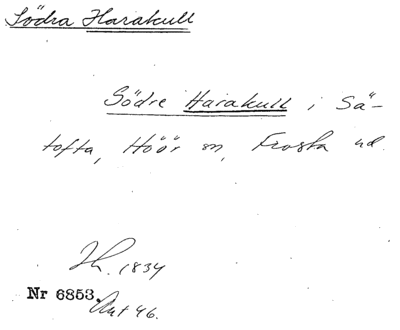 Södra Harakull
Södre Harakull i Sä-
tofta, Höör sn, Frosta hd.
1834
Nr 6853.
46.